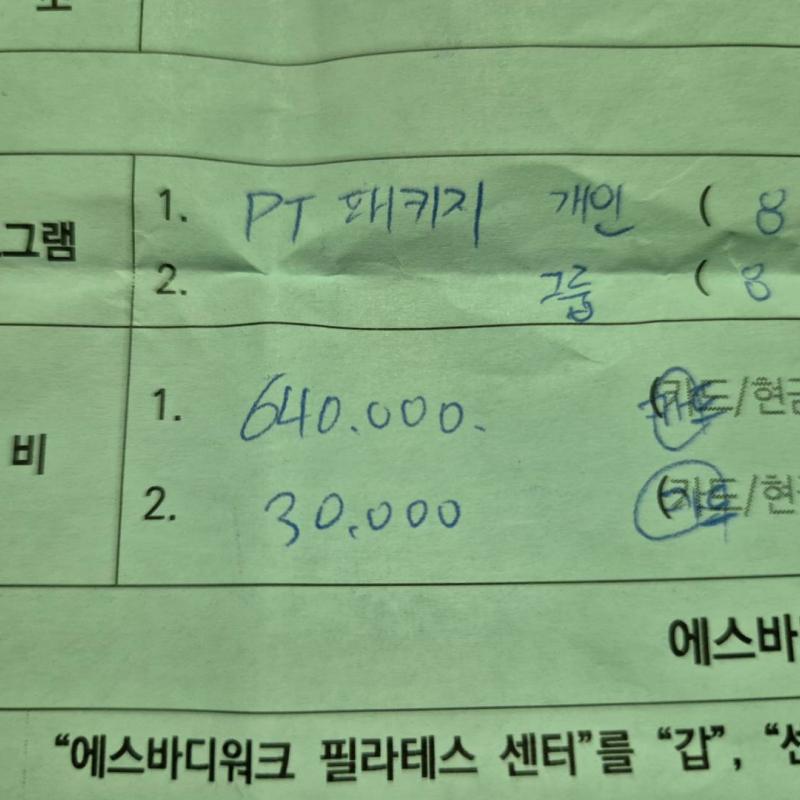 1. PT 패키지 개인 ( 8
그램
2. 그룹 ( 8
1. 640.000. (카드/현금
비
2. 30.000 (카드/현
에스바
“에스바디워크 필라테스 센터”를 “갑”, “센